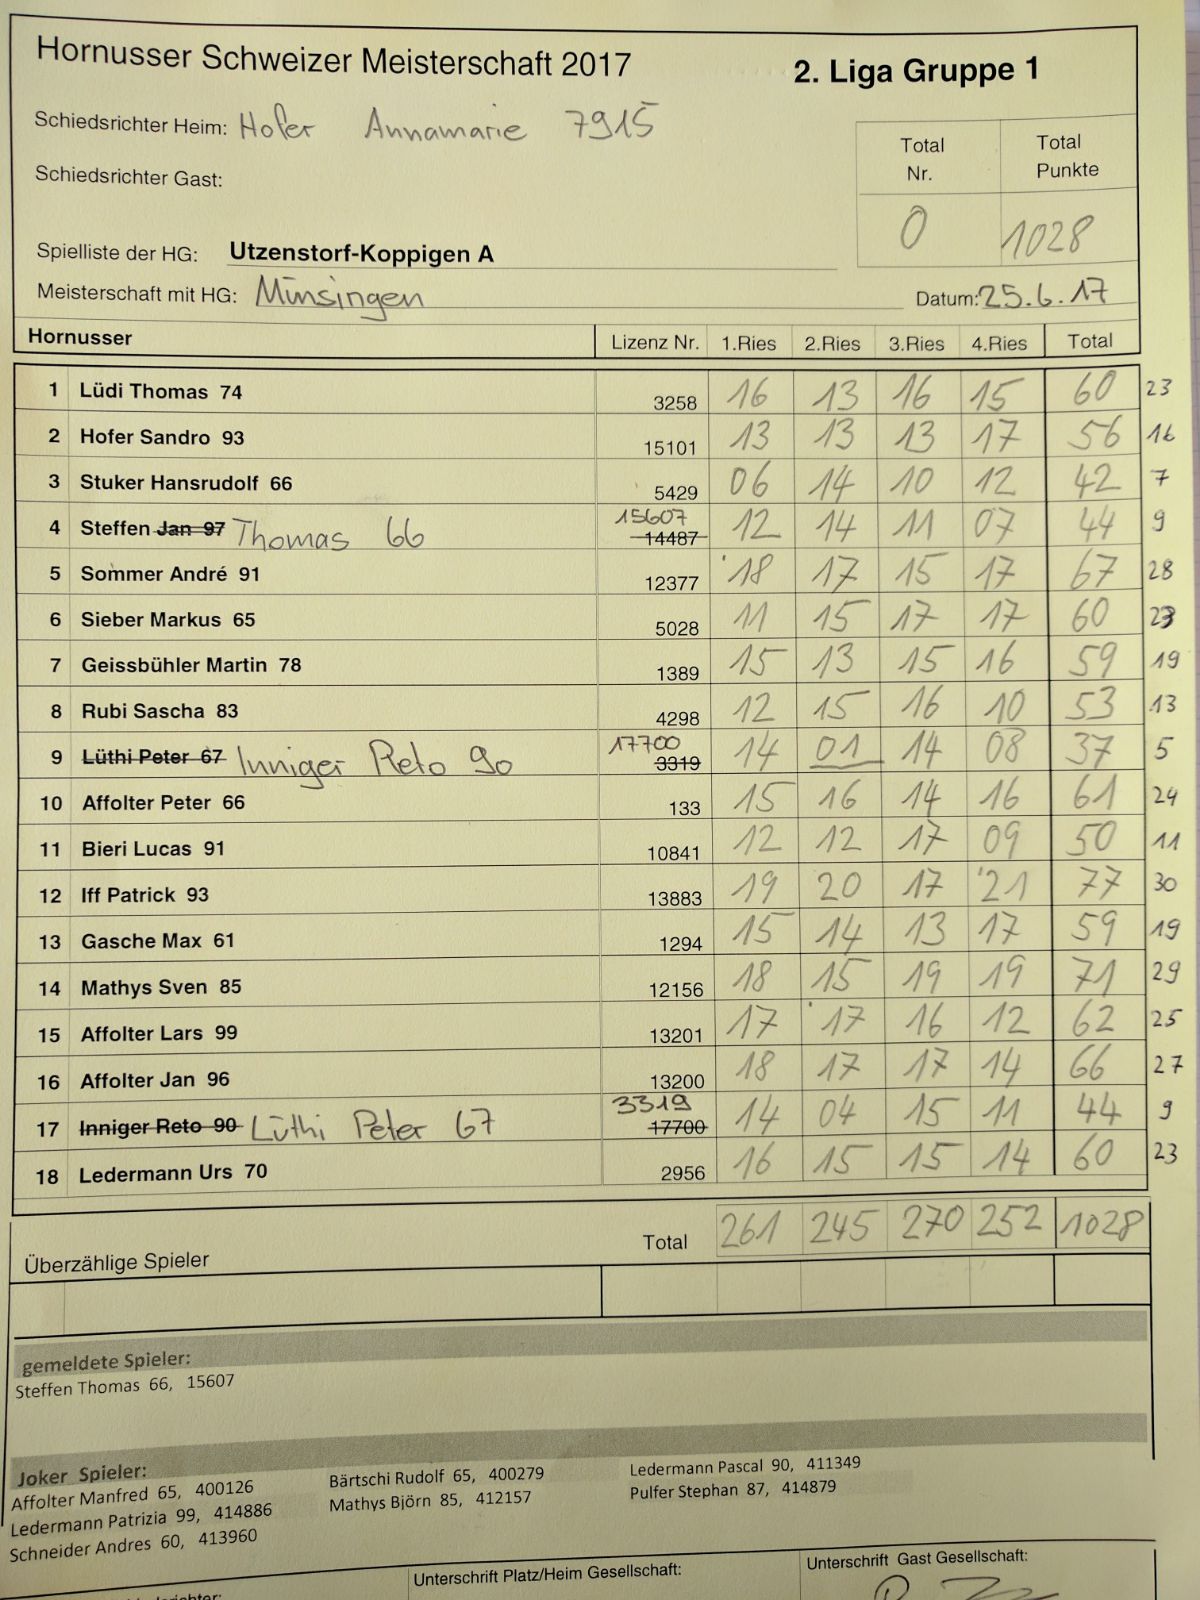 Hornusser Schweizer Meisterschaft 2017 2. Liga Gruppe 1
Schiedsrichter Heim: Hofer Annamarie 7915
Total Nr. Total Punkte
Schiedsrichter Gast:
0 1028
Spielliste der HG: Utzenstorf-Koppigen A
Meisterschaft mit HG: Münsingen Datum: 25.6.17
Hornusser Lizenz Nr. 1.Ries 2.Ries 3.Ries 4.Ries Total
1 Lüdi Thomas 74 3258 16 13 16 15 60 23
2 Hofer Sandro 93 15101 13 13 13 17 56 16
3 Stuker Hansrudolf 66 5429 06 14 10 12 42 7
4 Steffen Jan 97 Thomas 66 15607 14487 12 14 11 07 44 9
5 Sommer André 91 12377 18 17 15 17 67 28
6 Sieber Markus 65 5028 11 15 17 17 60 23
7 Geissbühler Martin 78 1389 15 13 15 16 59 19
8 Rubi Sascha 83 4298 12 15 16 10 53 13
9 Lüthi Peter 67 Inniger Reto 90 17700 3319 14 01 14 08 37 5
10 Affolter Peter 66 133 15 16 14 16 61 24
11 Bieri Lucas 91 10841 12 12 17 09 50 11
12 Iff Patrick 93 13883 19 20 17 21 77 30
13 Gasche Max 61 1294 15 14 13 17 59 19
14 Mathys Sven 85 12156 18 15 19 19 71 29
15 Affolter Lars 99 13201 17 17 16 12 62 25
16 Affolter Jan 96 13200 18 17 17 14 66 27
17 Inniger Reto 90 Lüthi Peter 67 3319 17700 14 04 15 11 44 9
18 Ledermann Urs 70 2956 16 15 15 14 60 23
Total 261 245 270 252 1028
Überzählige Spieler
gemeldete Spieler:
Steffen Thomas 66, 15607
Joker Spieler:
Affolter Manfred 65, 400126 Bärtschi Rudolf 65, 400279 Ledermann Pascal 90, 411349
Ledermann Patrizia 99, 414886 Mathys Björn 85, 412157 Pulfer Stephan 87, 414879
Schneider Andres 60, 413960
Unterschrift Platz/Heim Gesellschaft: Unterschrift Gast Gesellschaft: